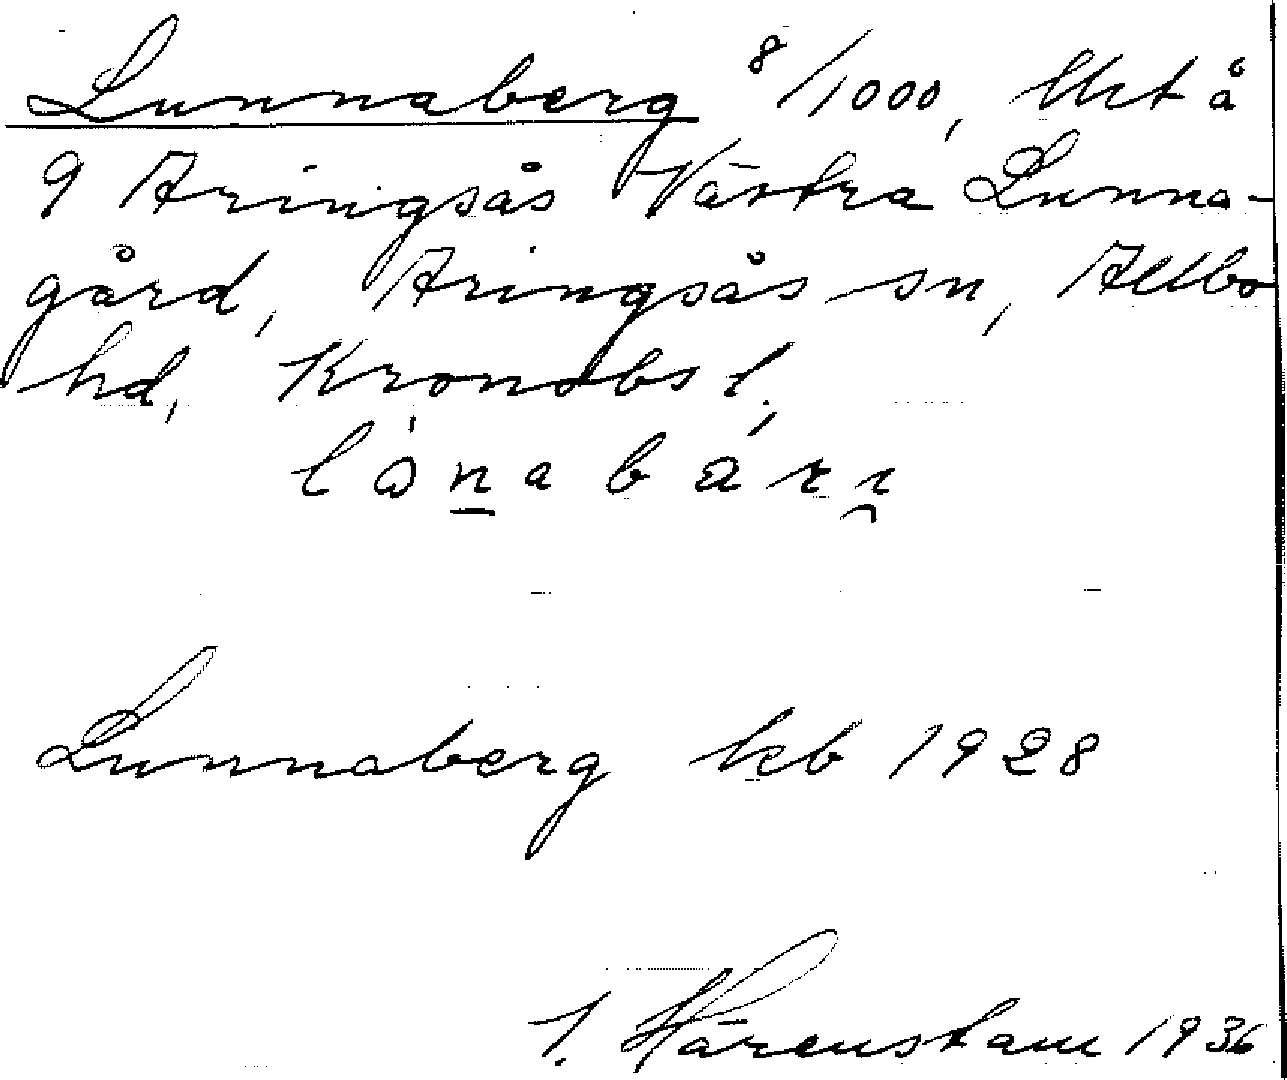 Lunnaberg 8/1000, Mkt å
9 Aringsås Västra Lunna-
gård, Aringsås sn, Allbo
hd, Kronobs l.,
lònabàrı
Lunnaberg kb 1928
I. Härenstam 1936